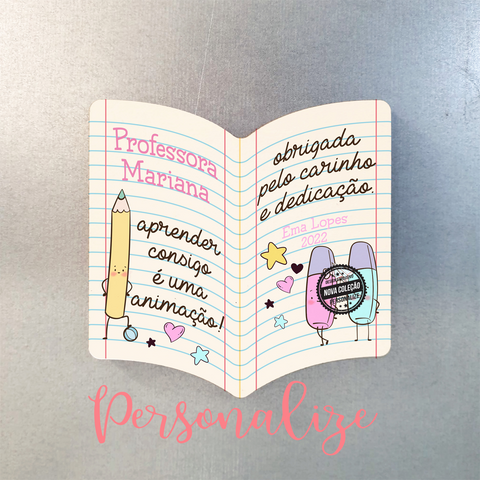 Professora
Mariana
aprender
consigo
é uma
animação!
obrigada
pelo carinho
e dedicação.
Ema Lopes
2022
NOVA COLEÇÃO
Personalize